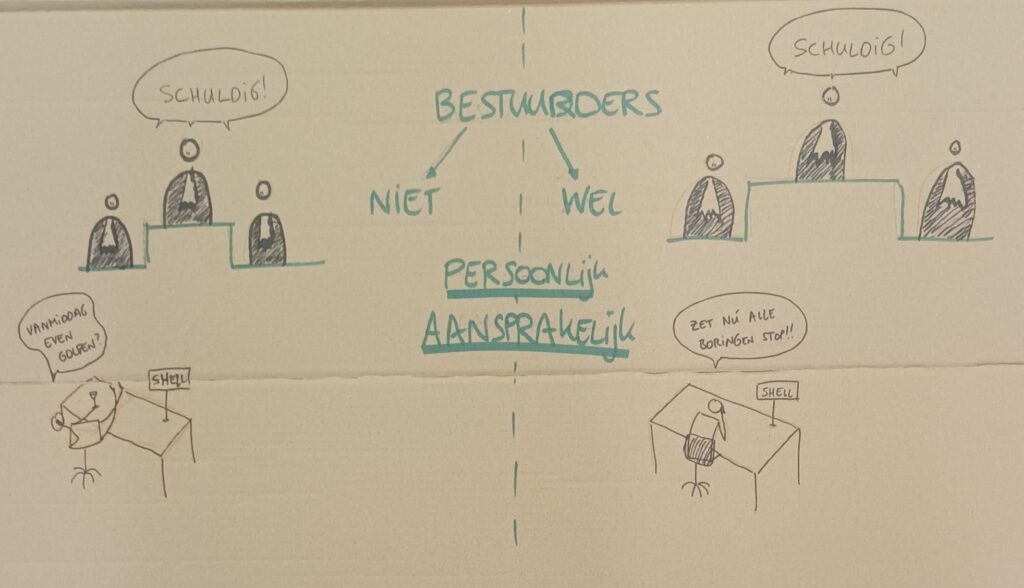 SCHULDIG!
SCHULDIG!
BESTUURDERS
NIET
WEL
PERSOONLIJK
AANSPRAKELIJK
VANMIDDAG
EVEN
GOLFEN?
SHELL
ZET NÚ ALLE
BORINGEN STOP!!
SHELL